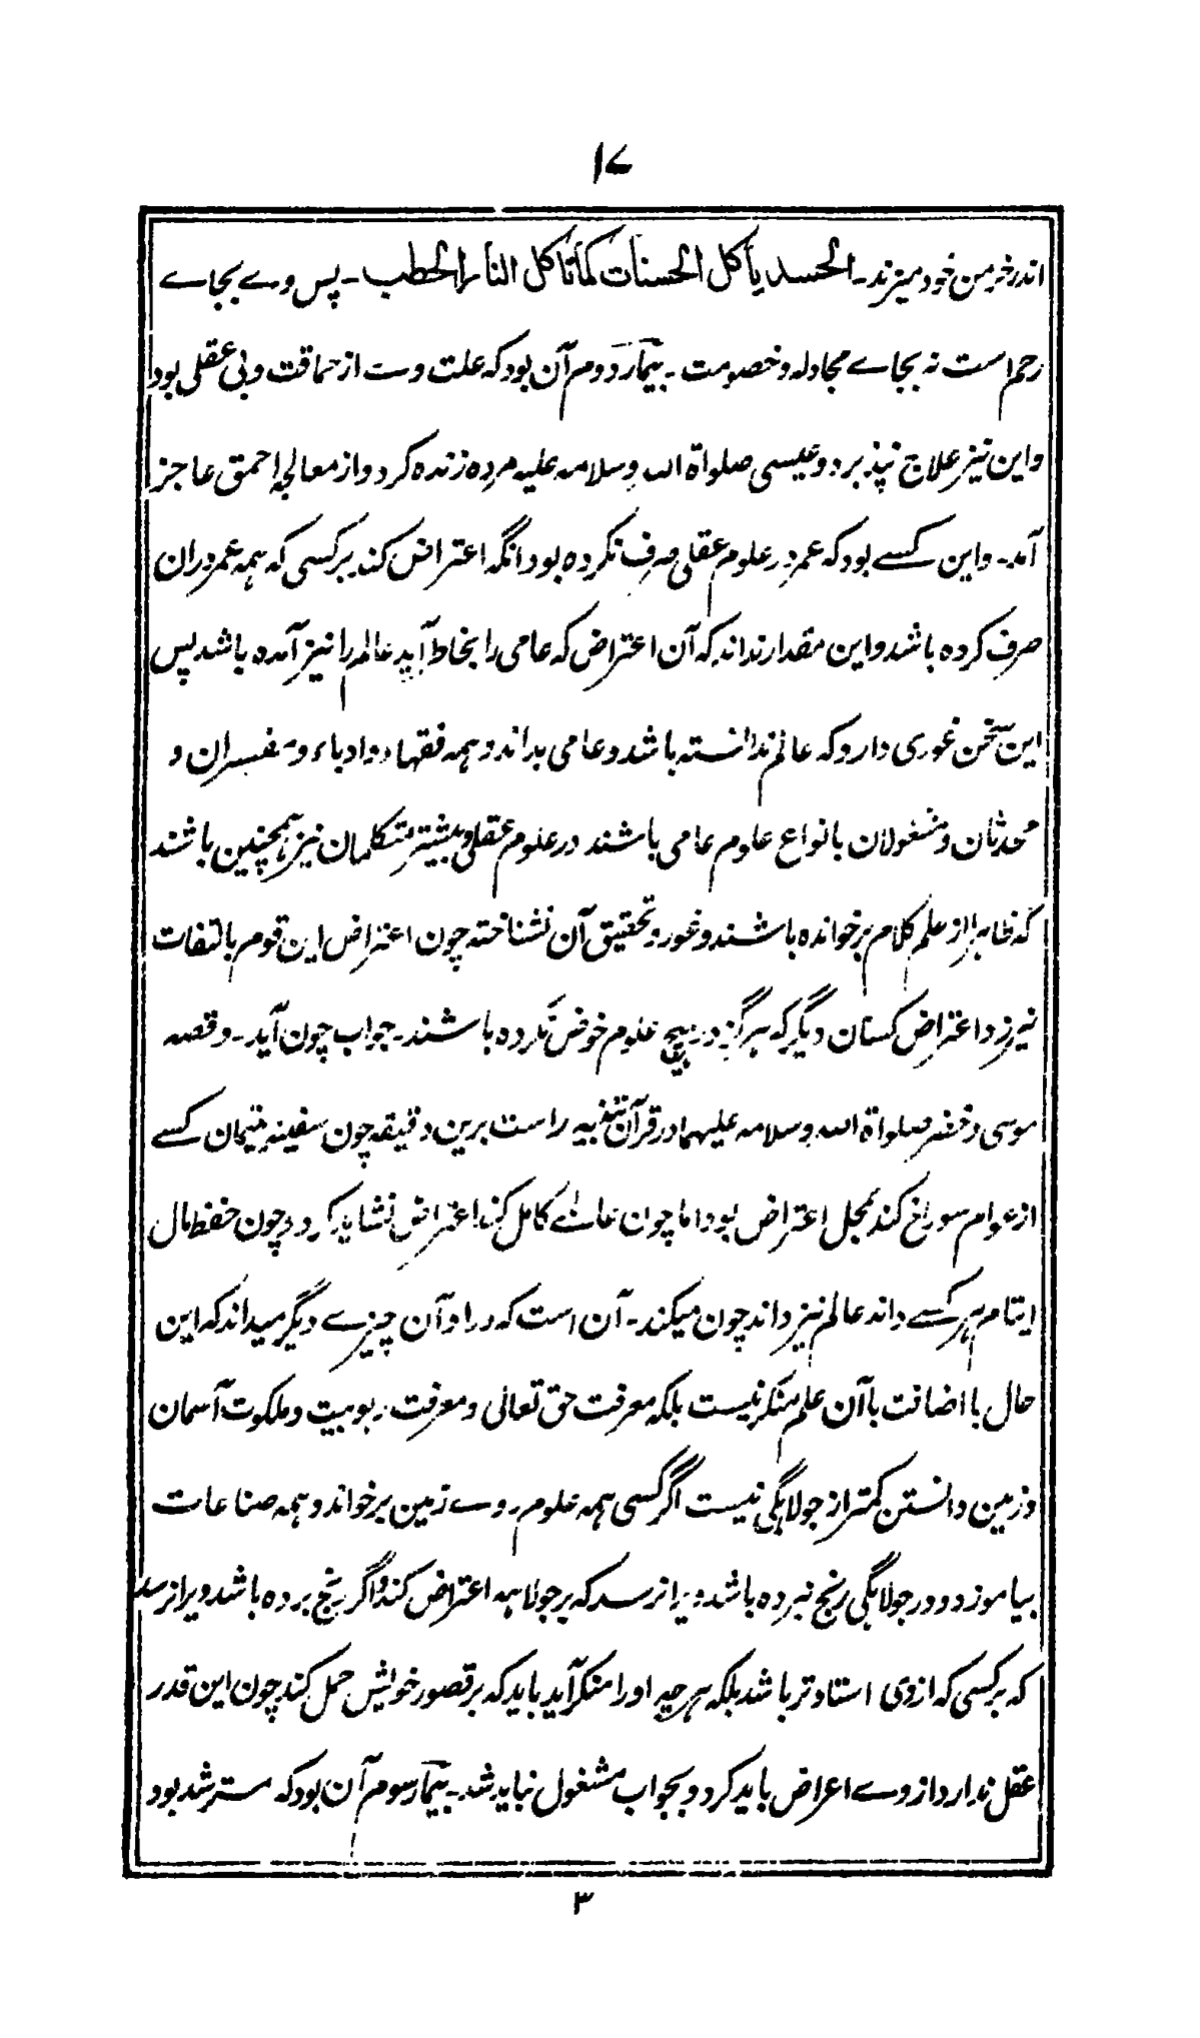 ۱۷
اندر خرمن خود میزند۔ الحسد یأکل الحسنات کما تأکل النار الحطب۔ پس وے بجاے
رحم است نہ بجاے مجادلہ و خصومت۔ بیمار دوم آن بود کہ علت وے از حماقت و بی عقلی بود
و این نیز علاج نپذیرد و عیسی صلواة الله وسلامه علیه مرده زنده کرد و از معالجہ احمق عاجز
آمد۔ و این کسے بود کہ عمر در علوم عقلی صرف نکرده بود انگہ اعتراض کند بر کسی کہ ہمہ عمر دران
صرف کرده باشد و این مقدار نداند کہ آن اعتراض کہ عامی را بخاطر آید عالم را نیز آمده باشد پس
این سخن غوری دارد کہ عالم ندانسته باشد و عامی بداند و ہمہ فقہا و ادباء و مفسران و
محدثان و مشغولان بانواع علوم عامی باشند در علوم عقلی و بیشتر متکلمان نیز ہمچنین باشند
کہ ظاہر از علم کلام بر خوانده باشند و غور و تحقیق آن نشناخته چون اعتراض این قوم بالتفات
نیرزد اعتراض کسان دیگر کہ ہرگز در ہیچ علوم خوض نکرده باشند۔ جواب چون آید۔ و قصہ
موسی و خضر صلواة الله وسلامه علیهما در قرآن تنبیہ راست برین دقیقہ چون سفینہ یتیمان کسے
از عوام سوراخ کند بمحل اعتراض بود اما چون عالمے کامل کند اعتراض نشاید کرد و چون حفظ مال
ایتام ہر کسے داند عالم نیز داند چون میکند۔ آن است کہ وراء آن چیزے دیگر میداند کہ این
حال با اضافت با آن علم منکر نیست بلکہ معرفت حق تعالی و معرفت ربوبیت و ملکوت آسمان
و زمین دانستن کمتر از جولاہگی نیست اگر کسی ہمہ علوم روے زمین بر خواند و ہمہ صناعات
بیاموزد و در جولاہگی رنج نبرده باشد ویرا نرسد کہ بر جولاہہ اعتراض کند و اگر رنج برده باشد ویرا نرسد
کہ بر کسی کہ از وی استاد تر باشد بلکہ ہر چہ او را منکر آید باید کہ بر قصور خویش حمل کند چون این قدر
عقل ندارد از وے اعراض باید کرد و بجواب مشغول نباید شد۔ بیمار سوم آن بود کہ مسترشد بود
۳